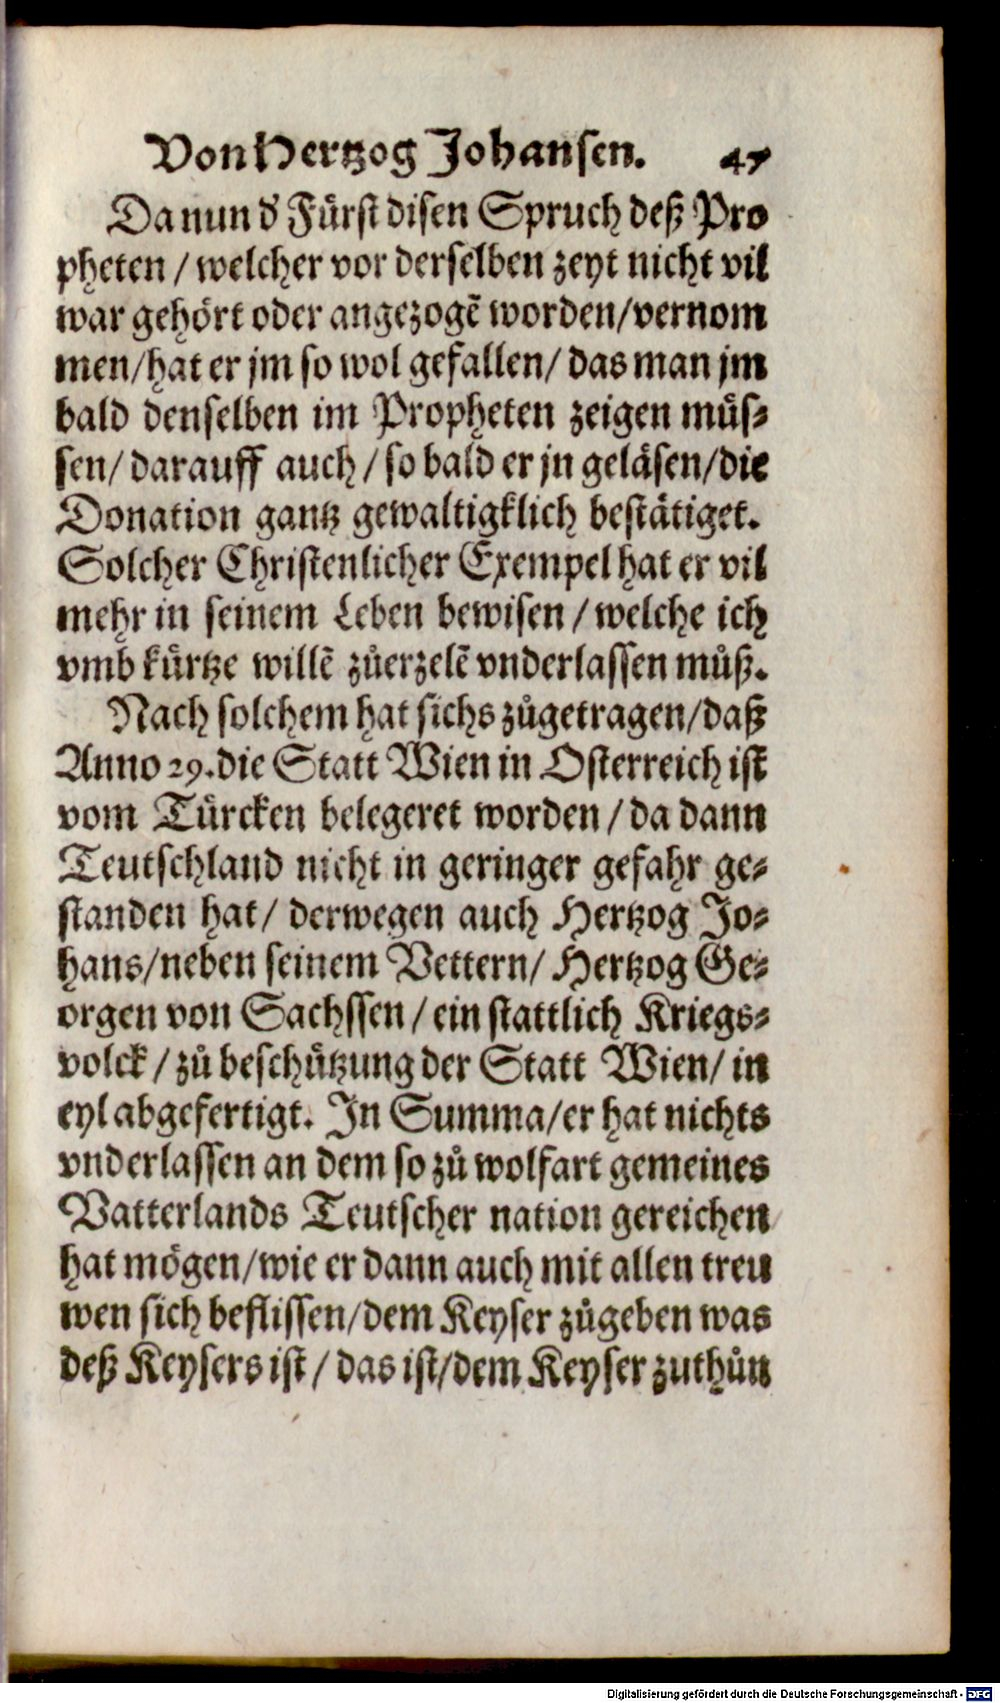 Von Hertzog Johansen. 47
Da nun d' Fürst disen Spruch deß Pro
pheten / welcher vor derselben zeyt nicht vil
war gehört oder angezogẽ worden/vernom
men/hat er jm so wol gefallen/ das man jm
bald denselben im Propheten zeigen müs-
sen/ darauff auch / so bald er jn geläsen/die
Donation gantz gewaltigklich bestätiget.
Solcher Christenlicher Exempel hat er vil
mehr in seinem Leben bewisen / welche ich
vmb kürtze willẽ zůerzelẽ vnderlassen můß.
Nach solchem hat sichs zůgetragen/daß
Anno 29. die Statt Wien in Osterreich ist
vom Türcken belegeret worden / da dann
Teutschland nicht in geringer gefahr ge-
standen hat/ derwegen auch Hertzog Jo-
hans/neben seinem Vettern/ Hertzog Ge-
orgen von Sachssen / ein stattlich Kriegs-
volck / zů beschützung der Statt Wien/ in
eyl abgefertigt. In Summa/er hat nichts
vnderlassen an dem so zů wolfart gemeines
Vatterlands Teutscher nation gereichen
hat mögen/wie er dann auch mit allen treu
wen sich beflissen/dem Keyser zůgeben was
deß Keysers ist / das ist/dem Keyser zuthůn
Digitalisierung gefördert durch die Deutsche Forschungsgemeinschaft - DFG